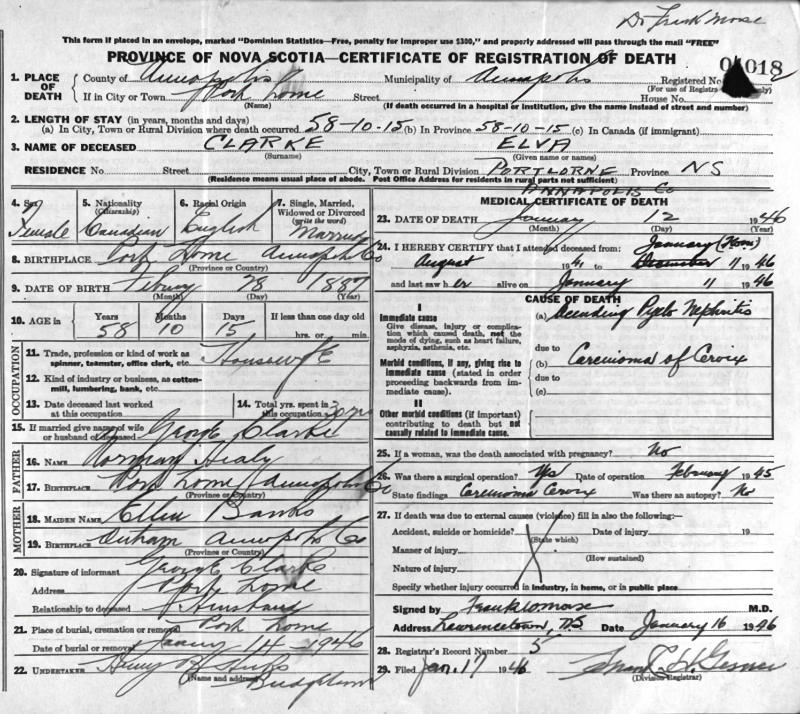 Dr Frank Morse
This form if placed in an envelope, marked "Dominion Statistics—Free, penalty for improper use $300," and properly addressed will pass through the mail "FREE"
PROVINCE OF NOVA SCOTIA—CERTIFICATE OF REGISTRATION OF DEATH
018
1. PLACE OF DEATH
County of Annapolis Municipality of Annapolis Registered No.
(For use of Registrar only)
If in City or Town Port Lorne Street House No.
(Name) (If death occurred in a hospital or institution, give the name instead of street and number)
2. LENGTH OF STAY (in years, months and days)
(a) In City, Town or Rural Division where death occurred 58-10-15 (b) In Province 58-10-15 (c) In Canada (if immigrant)
3. NAME OF DECEASED CLARKE ELVA
(Surname) (Given name or names)
RESIDENCE No. Street City, Town or Rural Division PORT LORNE Province NS
(Residence means usual place of abode. Post Office Address for residents in rural parts not sufficient)
ANNAPOLIS Co
4. Sex Female
5. Nationality (Citizenship) Canadian
6. Racial Origin English
7. Single, Married, Widowed or Divorced (write the word) Married
8. BIRTHPLACE Port Lorne Annapolis Co
(Province or Country)
9. DATE OF BIRTH 28 1887
(Month) (Day) (Year)
10. AGE in Years Months Days If less than one day old
58 10 15 hrs. or min.
OCCUPATION
11. Trade, profession or kind of work as spinner, teamster, office clerk, etc. Housewife
12. Kind of industry or business, as cotton-mill, lumbering, bank, etc.
13. Date deceased last worked at this occupation
14. Total yrs. spent in this occupation
15. If married give name of wife or husband of deceased George Clarke
FATHER
16. NAME Norman Healy
17. BIRTHPLACE Port Lorne Annapolis Co
(Province or Country)
MOTHER
18. MAIDEN NAME Ellen Banks
19. BIRTHPLACE Annapolis Co
(Province or Country)
20. Signature of informant George Clarke
Address Port Lorne
Relationship to deceased Husband
21. Place of burial, cremation or removal Port Lorne
Date of burial or removal 14 - 1946
22. UNDERTAKER
(Name and address)
MEDICAL CERTIFICATE OF DEATH
23. DATE OF DEATH January 12 1946
(Month) (Day) (Year)
24. I HEREBY CERTIFY that I attended deceased from:
January
August 19 December 11 1946
and last saw her alive on January 11 1946
CAUSE OF DEATH
I
Immediate cause
Give disease, injury or complication which caused death, not the mode of dying, such as heart failure, asphyxia, asthenia, etc.
(a) Ascending Pyelo Nephritis
due to
Morbid conditions, if any, giving rise to immediate cause (stated in order proceeding backwards from immediate cause).
(b) Carcinoma of Cervix
due to
(c)
II
Other morbid conditions (if important) contributing to death but not causally related to immediate cause.
25. If a woman, was the death associated with pregnancy? No
26. Was there a surgical operation? Yes Date of operation February 1945
State findings Carcinoma Cervix Was there an autopsy? No
27. If death was due to external causes (violence) fill in also the following:—
Accident, suicide or homicide? Date of injury 19
(State which)
Manner of injury
(How sustained)
Nature of injury
Specify whether injury occurred in industry, in home, or in public place
Signed by Frank Morse M.D.
Address Lawrencetown, N.S. Date January 16 1946
28. Registrar's Record Number 5
29. Filed Jan. 17 1946
(Division Registrar)